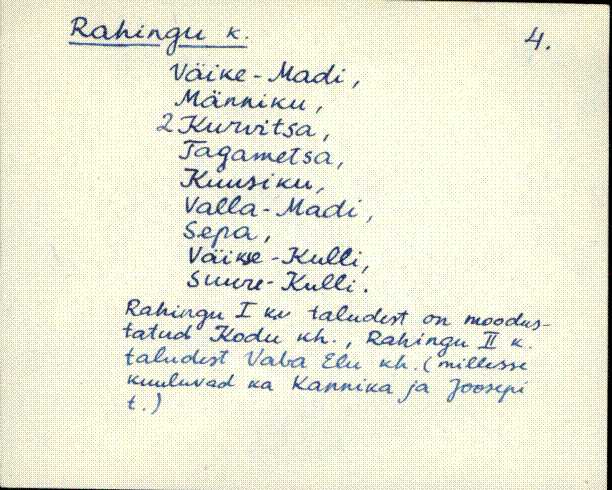 Rahingu k.
4.
Väike-Madi,
Männiku,
2 Kurvitsa,
Tagametsa,
Kuusiku,
Valla-Madi,
Sepa,
Väikse-Kulli,
Suure-Kulli.
Rahingu I ku taludest on moodus-
tatud Kodu kh., Rahingu II k.
taludest Vaba Elu kh. (millesse
kuuluvad ka Kannika ja Joosepi
t.)